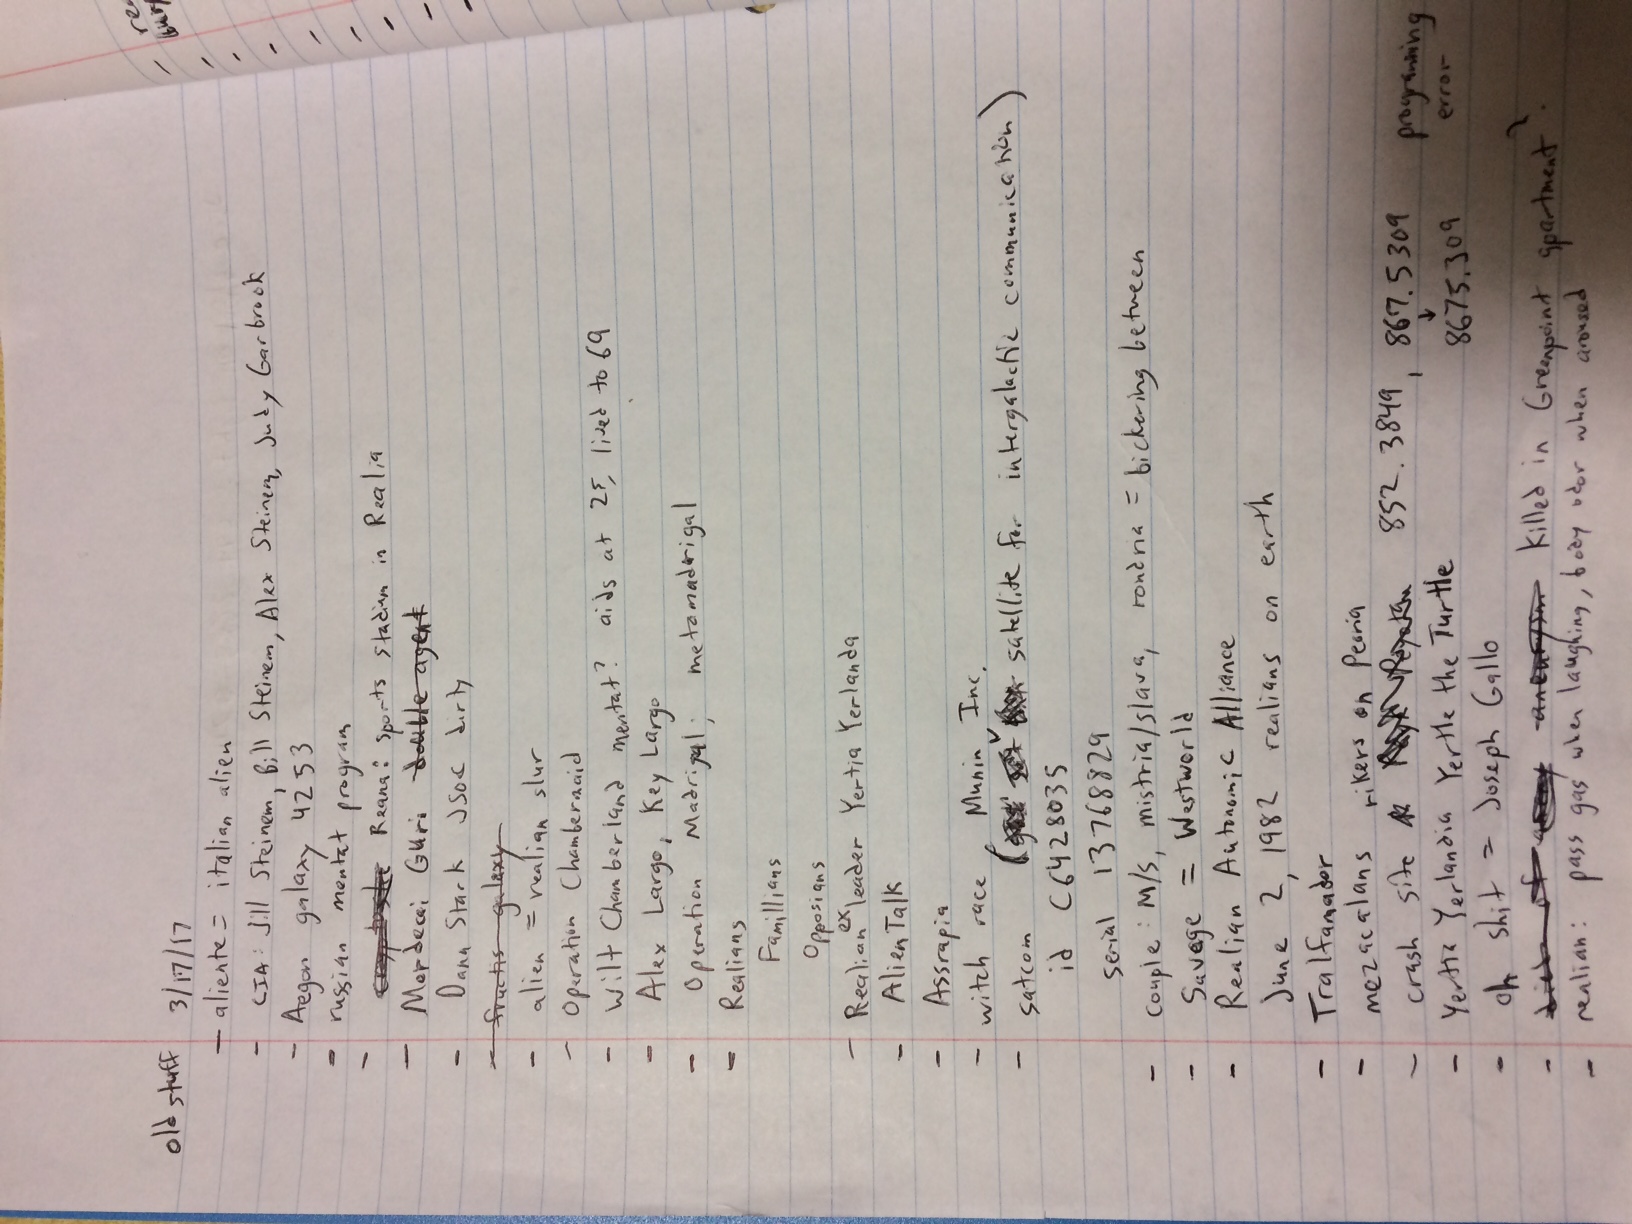 old stuff 3/17/17
- aliente = italian alien
- CIA: Jill Steinem, Bill Steinem, Alex Steinem, Judy Garbrook
- Aegon galaxy 4253
- russian mentat program
- Reana: sports stadium in Realia
- Mordecai Guri double agent
- Dana Stark JSOC dirty
- fructis galaxy
- alien = realian slur
- Operation Chambermaid
- Wilt Chamberland mentat? aids at 25, lived to 69
- Alex Largo, Key Largo
- Operation Madrigal; metamadrigal
- Realians
Famillians
Opposians
- Realian ex leader Yertia Yerlanda
- AlienTalk
- Assrapia
- witch race Munin Inc.
- satcom ( satellite for intergalactic communication)
id C6428035
serial 13768829
- couple: M/S, mistria/slava, rondria = bickering between
- Savage = Westworld
- Realian Autonomic Alliance
June 2, 1982 realians on earth
- Tralfamador
- mezacalans rikers on Peoria
- crash site 852.3849, 867.5309 programming
- Yertia Yerlandia Yertle the Turtle 8675.309 error
- oh shit = Joseph Gallo
- died of aneurysm Killed in Greenpoint apartment?
- realian: pass gas when laughing, body odor when aroused